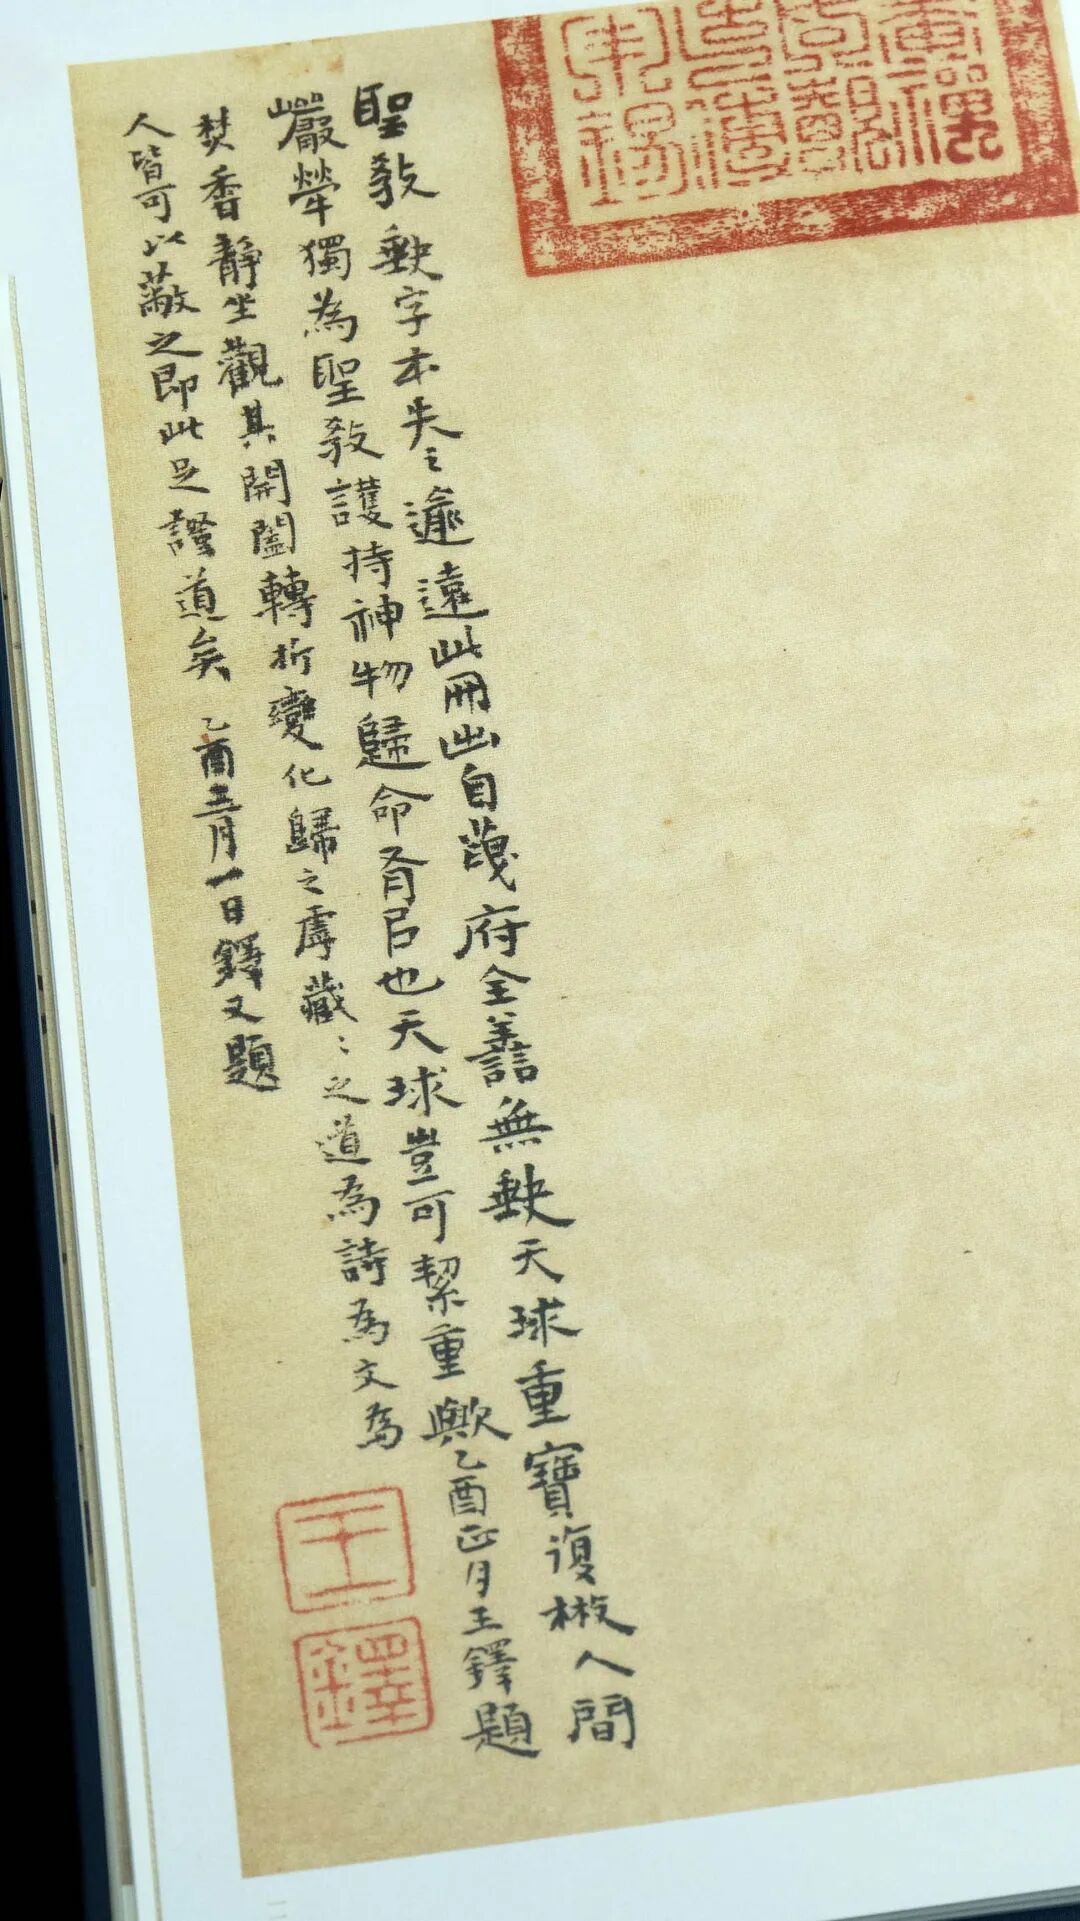 聖教缺字本失之遠遠此冊出自蔑府全譱無缺天球重寶復椒人間
巖犖獨為聖教護持神物歸命有㠯也天球豈可挈重歟乙酉正月王鐸題
焚香靜坐觀其開闔轉折變化歸之虖藏：之道為詩為文為
人皆可以蔽之即此足證道矣 乙酉三月一日鐸又題
王鐸